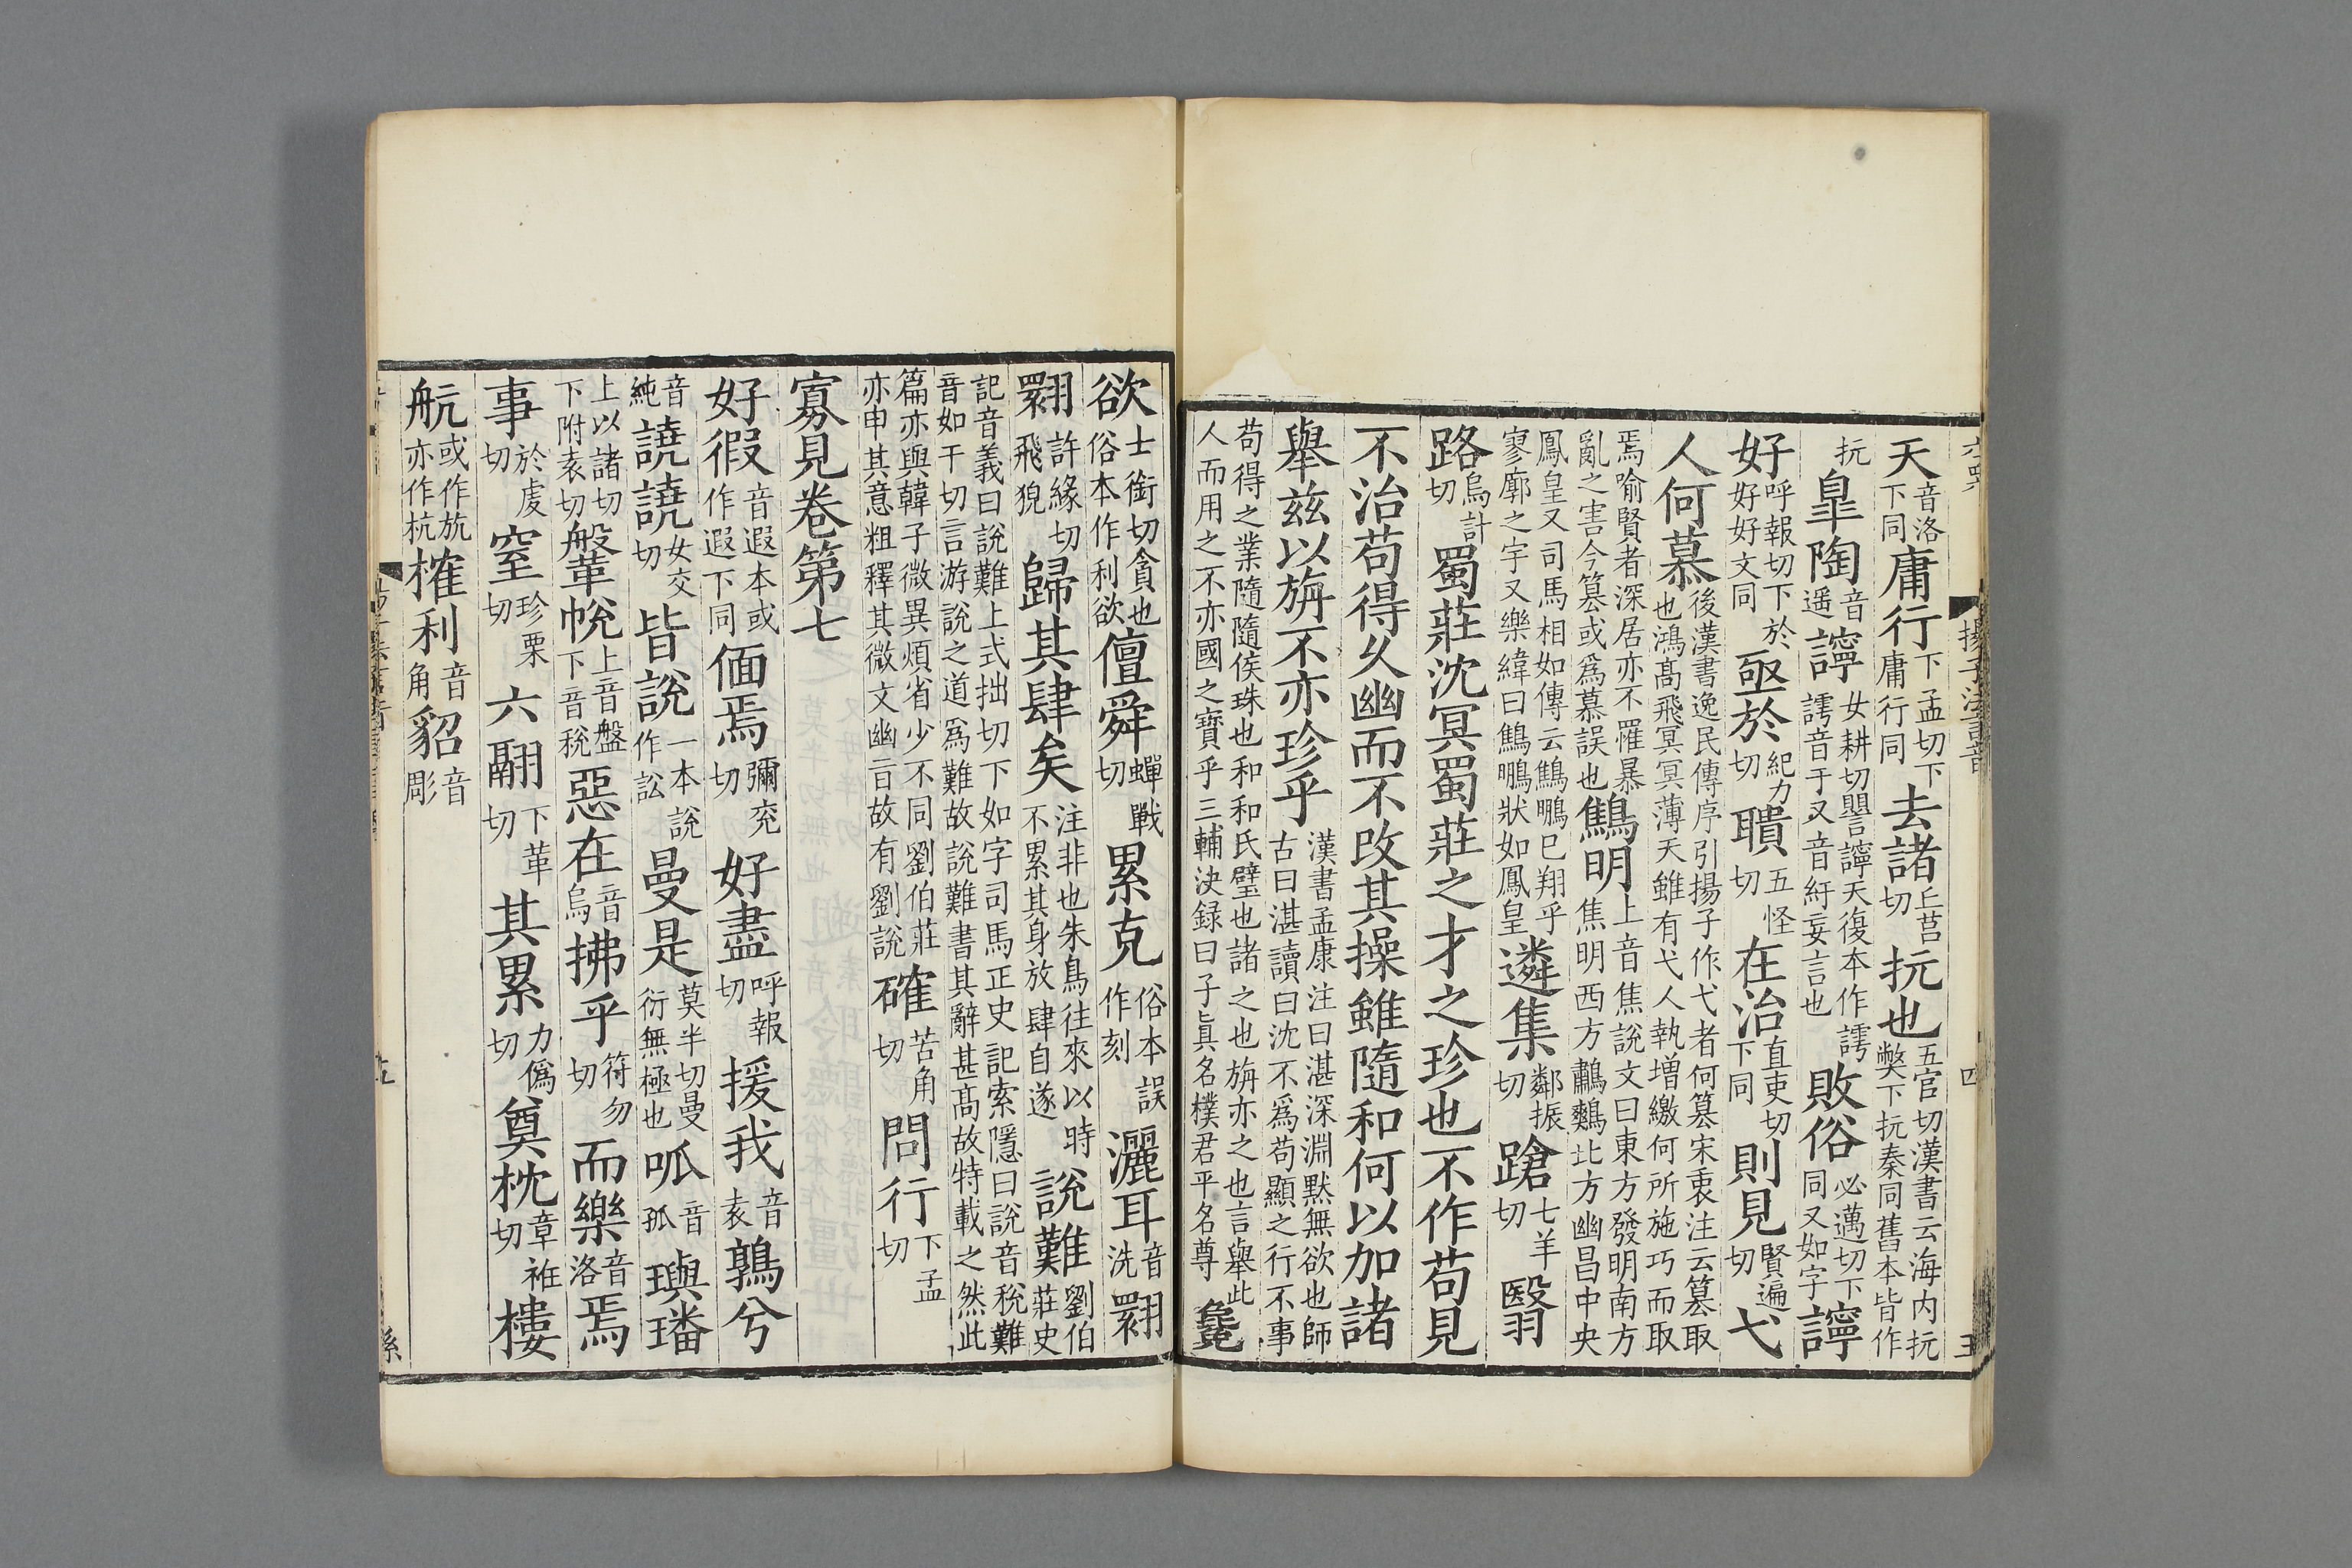 天音洛下同庸行下孟切下庸行同去諸丘莒切抏也五官切漢書云海内抏獘下抏秦同舊本皆作
抏臯陶音遥女耕切譻天復本作謣謣音于又音紆妄言也敗俗必邁切下同又如字
好呼報切下於好好文同亟於紀力切聵五怪切在治直吏切下同則見賢遍切弋
人何慕後漢書逸民傳序引揚子作弋者何篡宋衷注云篡取也鴻髙飛冥冥薄天雖有弋人執增繳何所施巧而取
焉喻賢者深居亦不罹暴亂之害今篡或爲慕誤也鷦明上音焦說文曰東方發明南方焦明西方鷫鷞北方幽昌中央
鳳皇又司馬相如傳云鷦鵬已翔乎寥廓之宇又樂緯曰鷦鵬狀如鳳皇遴集鄰振切蹌七羊切翳
路烏計切蜀莊沈冥蜀莊之才之珍也不作苟見
不治苟得久幽而不改其操雖隨和何以加諸
舉兹以旃不亦珍乎漢書孟康注曰湛深淵黙無欲也師古曰湛讀曰沈不爲苟顯之行不事
苟得之業隨隨侯珠也和和氏璧也諸之也旃亦之也言舉此人而用之不亦國之寶乎三輔決録曰子眞名樸君平名尊毚
欲士銜切貪也俗本作利欲儃舜蟬戰切累克俗本誤作刻灑耳音洗翾
翾許緣切飛猊歸其肆矣注非也朱鳥往來以時不累其身放肆自遂說難劉伯莊史
記音義曰說難上式拙切下如字司馬正史記索隱曰說音稅難音如干切言游說之道爲難故說難書其辭甚髙故特載之然此
篇亦與韓子微異煩省少不同劉伯莊亦申其意粗釋其微文幽旨故有劉說確苦角切問行下孟切
寡見卷第七
好徦音遐本或作遐下同偭焉彌兖切好盡呼報切援我音袁鶉兮
音純譊譊女交切皆說一本說作訟曼是莫半切曼衍無極也呱音孤璵璠
上以諸切下附袁切鞶帨上音盤下音稅惡在音烏拂乎符勿切而樂音洛焉
事於䖍切窒珍栗切六翮下革切其累力僞切奠枕章袵切樓
航或作斻亦作杭榷利音角貂音彫
揚子法言音
四
五